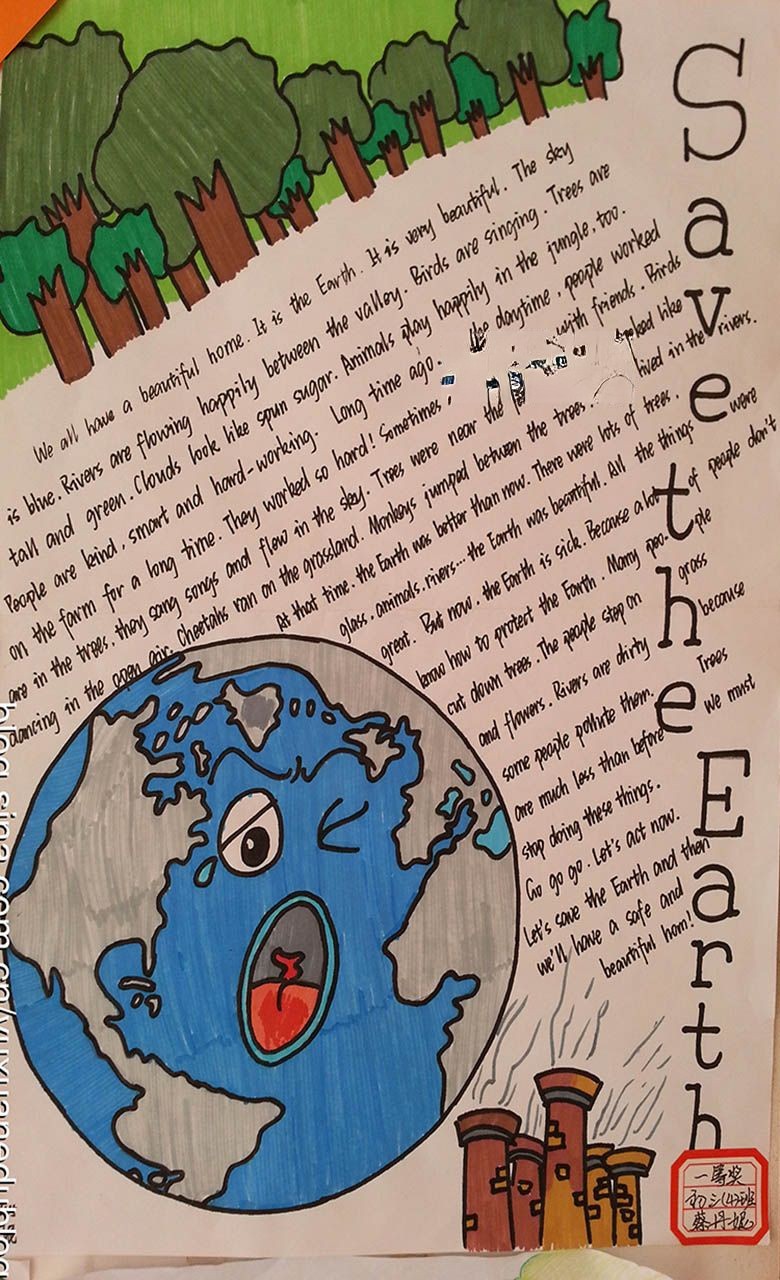 Save the Earth
We all have a beautiful home. It is the Earth. It is very beautiful. The sky
is blue. Rivers are flowing happily between the valley. Birds are singing. Trees are
tall and green. Clouds look like spun sugar. Animals play happily in the jungle, too.
People are kind, smart and hard-working. Long time ago. the daytime, people worked
on the farm for a long time. They worked so hard! Sometimes, with friends. Birds
are in the trees, they sang songs and flew in the sky. Trees were near the looked like
dancing in the open air. Cheetahs ran on the grassland. Monkeys jumped between the trees. lived in the rivers.
At that time, the Earth was better than now. There were lots of trees.
glass, animals, rivers... the Earth was beautiful. All the things were
great. But now, the Earth is sick. Because a lot of people don't
know how to protect the Earth. Many peo- ple
cut down trees. The people step on grass
and flowers. Rivers are dirty because
some people pollute them. Trees
are much less than before we must
stop doing these things.
Go go go. Let's act now.
Let's save the Earth and then
we'll have a safe and
beautiful hom!
一等奖
初三(4)班
蔡丹妮